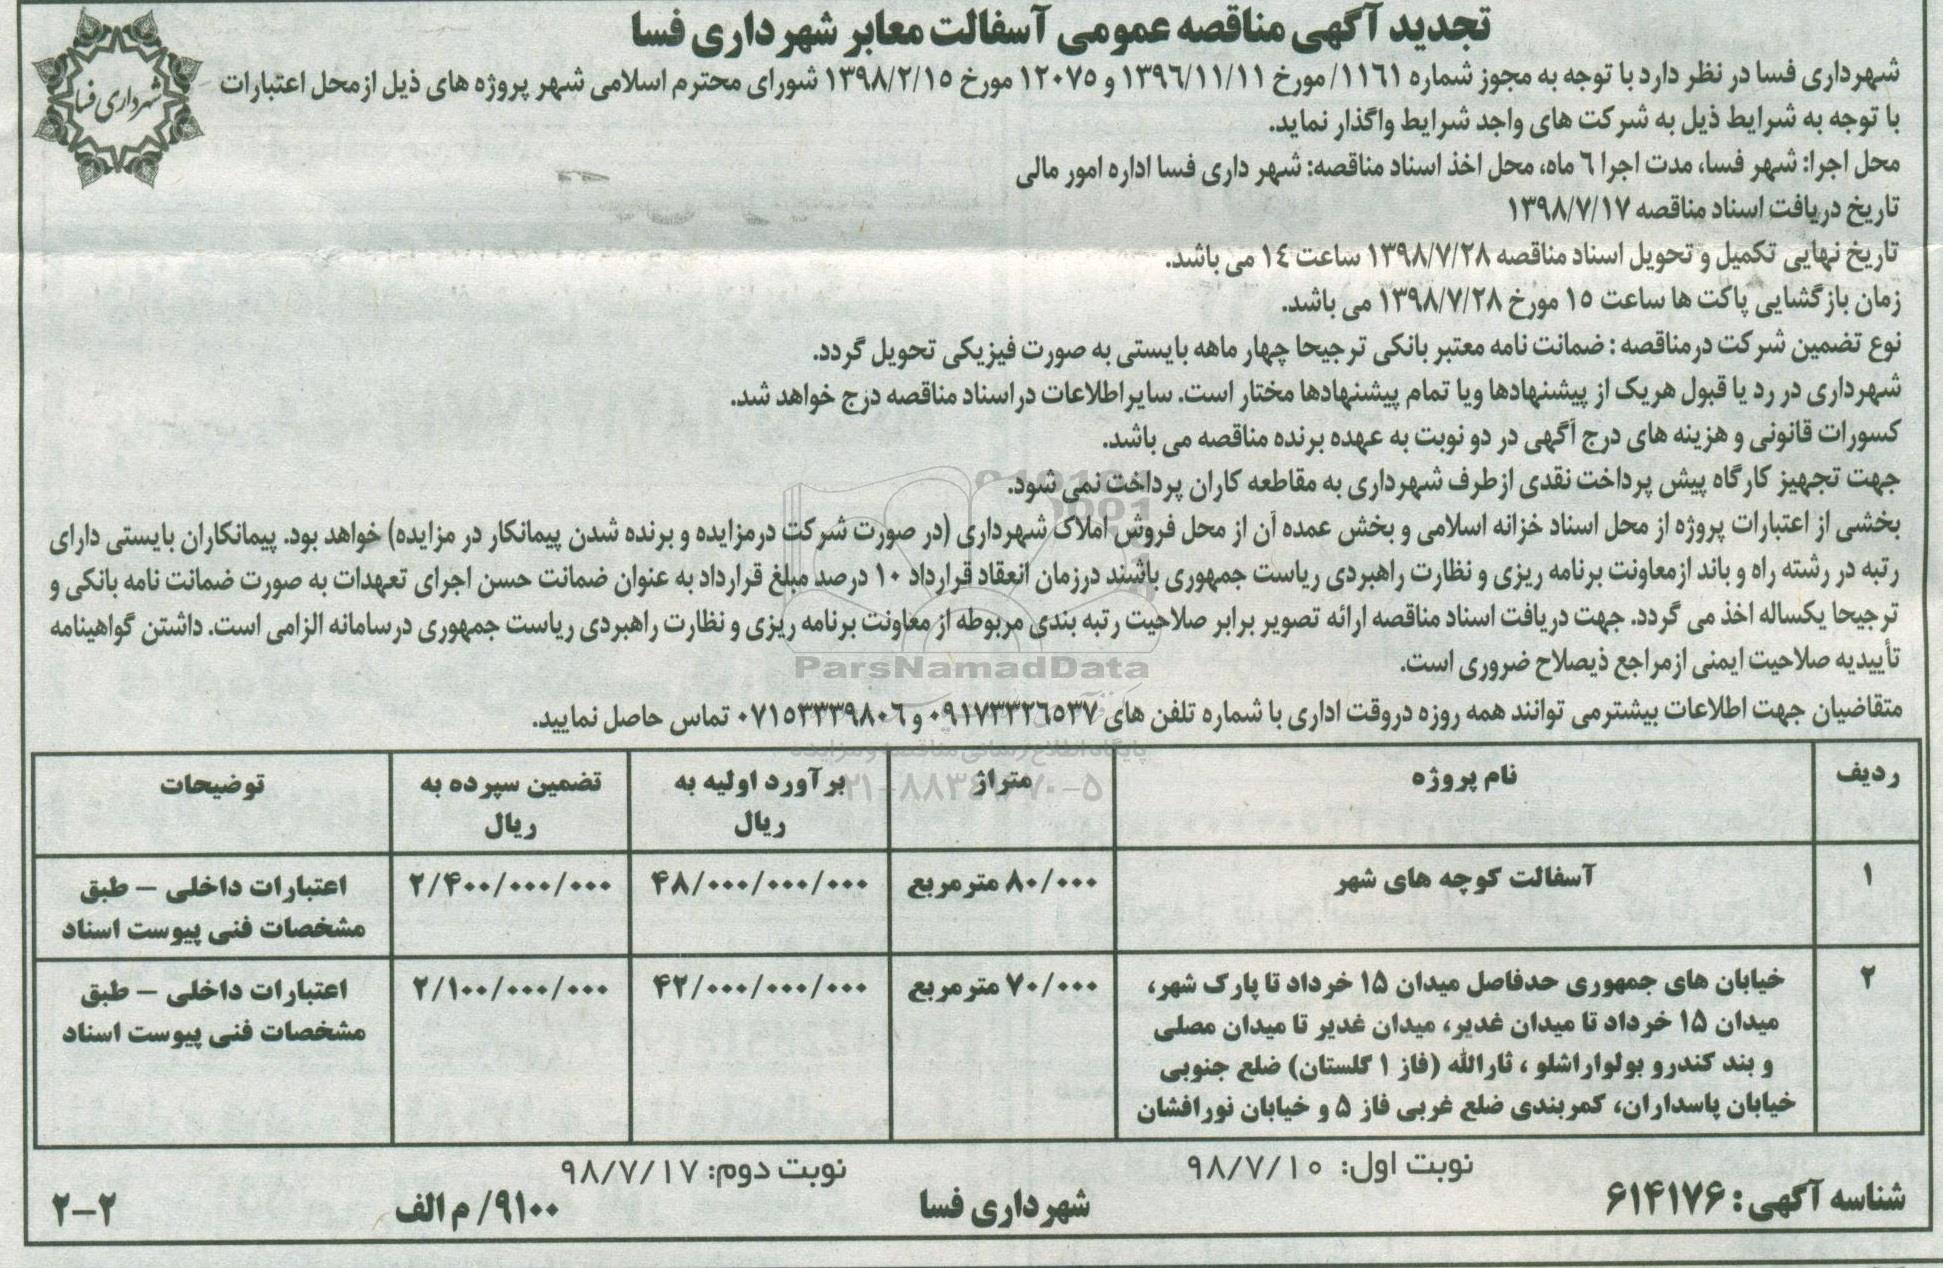 تجدید آگهی مناقصه عمومی آسفالت معابر شهرداری فسا
شهرداری فسا
شهرداری فسا در نظر دارد با توجه به مجوز شماره ۱۱۶۱/ مورخ ۱۳۹۶/۱۱/۱۱ و ۱۲۰۷۵ مورخ ۱۳۹۸/۲/۱۵ شورای محترم اسلامی شهر پروژه های ذیل ازمحل اعتبارات
با توجه به شرایط ذیل به شرکت های واجد شرایط واگذار نماید.
محل اجرا: شهر فسا، مدت اجرا ۶ ماه، محل اخذ اسناد مناقصه: شهر داری فسا اداره امور مالی
تاریخ دریافت اسناد مناقصه ۱۳۹۸/۷/۱۷
تاریخ نهایی تکمیل و تحویل اسناد مناقصه ۱۳۹۸/۷/۲۸ ساعت ۱۴ می باشد.
زمان بازگشایی پاکت ها ساعت ۱۵ مورخ ۱۳۹۸/۷/۲۸ می باشد.
نوع تضمین شرکت درمناقصه : ضمانت نامه معتبر بانکی ترجیحا چهار ماهه بایستی به صورت فیزیکی تحویل گردد.
شهرداری در رد یا قبول هریک از پیشنهادها ویا تمام پیشنهادها مختار است. سایراطلاعات دراسناد مناقصه درج خواهد شد.
کسورات قانونی و هزینه های درج آگهی در دو نوبت به عهده برنده مناقصه می باشد.
جهت تجهیز کارگاه پیش پرداخت نقدی ازطرف شهرداری به مقاطعه کاران پرداخت نمی شود.
بخشی از اعتبارات پروژه از محل اسناد خزانه اسلامی و بخش عمده آن از محل فروش املاک شهرداری (در صورت شرکت درمزایده و برنده شدن پیمانکار در مزایده) خواهد بود. پیمانکاران بایستی دارای
رتبه در رشته راه و باند ازمعاونت برنامه ریزی و نظارت راهبردی ریاست جمهوری باشند درزمان انعقاد قرارداد ۱۰ درصد مبلغ قرارداد به عنوان ضمانت حسن اجرای تعهدات به صورت ضمانت نامه بانکی و
ترجیحا یکساله اخذ می گردد. جهت دریافت اسناد مناقصه ارائه تصویر برابر صلاحیت رتبه بندی مربوطه از معاونت برنامه ریزی و نظارت راهبردی ریاست جمهوری درسامانه الزامی است. داشتن گواهینامه
تأییدیه صلاحیت ایمنی ازمراجع ذیصلاح ضروری است.
ParsNamadData
متقاضیان جهت اطلاعات بیشترمی توانند همه روزه دروقت اداری با شماره تلفن های ۰۹۱۷۳۳۲۶۵۳۷ و ۰۷۱۵۳۳۳۹۸۰۶ تماس حاصل نمایید.
ردیف نام پروژه متراژ برآورد اولیه به ریال تضمین سپرده به ریال توضیحات
۱ آسفالت کوچه های شهر ۸۰/۰۰۰ مترمربع ۴۸/۰۰۰/۰۰۰/۰۰۰ ۲/۴۰۰/۰۰۰/۰۰۰ اعتبارات داخلی – طبق
مشخصات فنی پیوست اسناد
۲ خیابان های جمهوری حدفاصل میدان ۱۵ خرداد تا پارک شهر، ۷۰/۰۰۰ مترمربع ۴۲/۰۰۰/۰۰۰/۰۰۰ ۲/۱۰۰/۰۰۰/۰۰۰ اعتبارات داخلی – طبق
میدان ۱۵ خرداد تا میدان غدیر، میدان غدیر تا میدان مصلی مشخصات فنی پیوست اسناد
و بند کندرو بولواراشلو ، ثارالله (فاز ۱ گلستان) ضلع جنوبی
خیابان پاسداران، کمربندی ضلع غربی فاز ۵ و خیابان نورافشان
نوبت اول: ۹۸/۷/۱۰ نوبت دوم: ۹۸/۷/۱۷
شناسه آگهی : ۶۱۴۱۷۶ شهرداری فسا ۹۱۰۰/ م الف ۲-۲